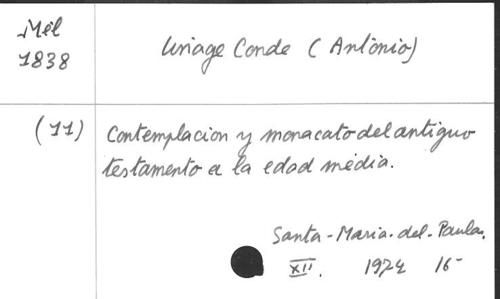 Mél
1838
Uriage Conde (António)
(11)
Contemplacion y monacato del antiguo
testamento a la edad média.
Santa-Maria.del.Paular.
XII. 1974 16-